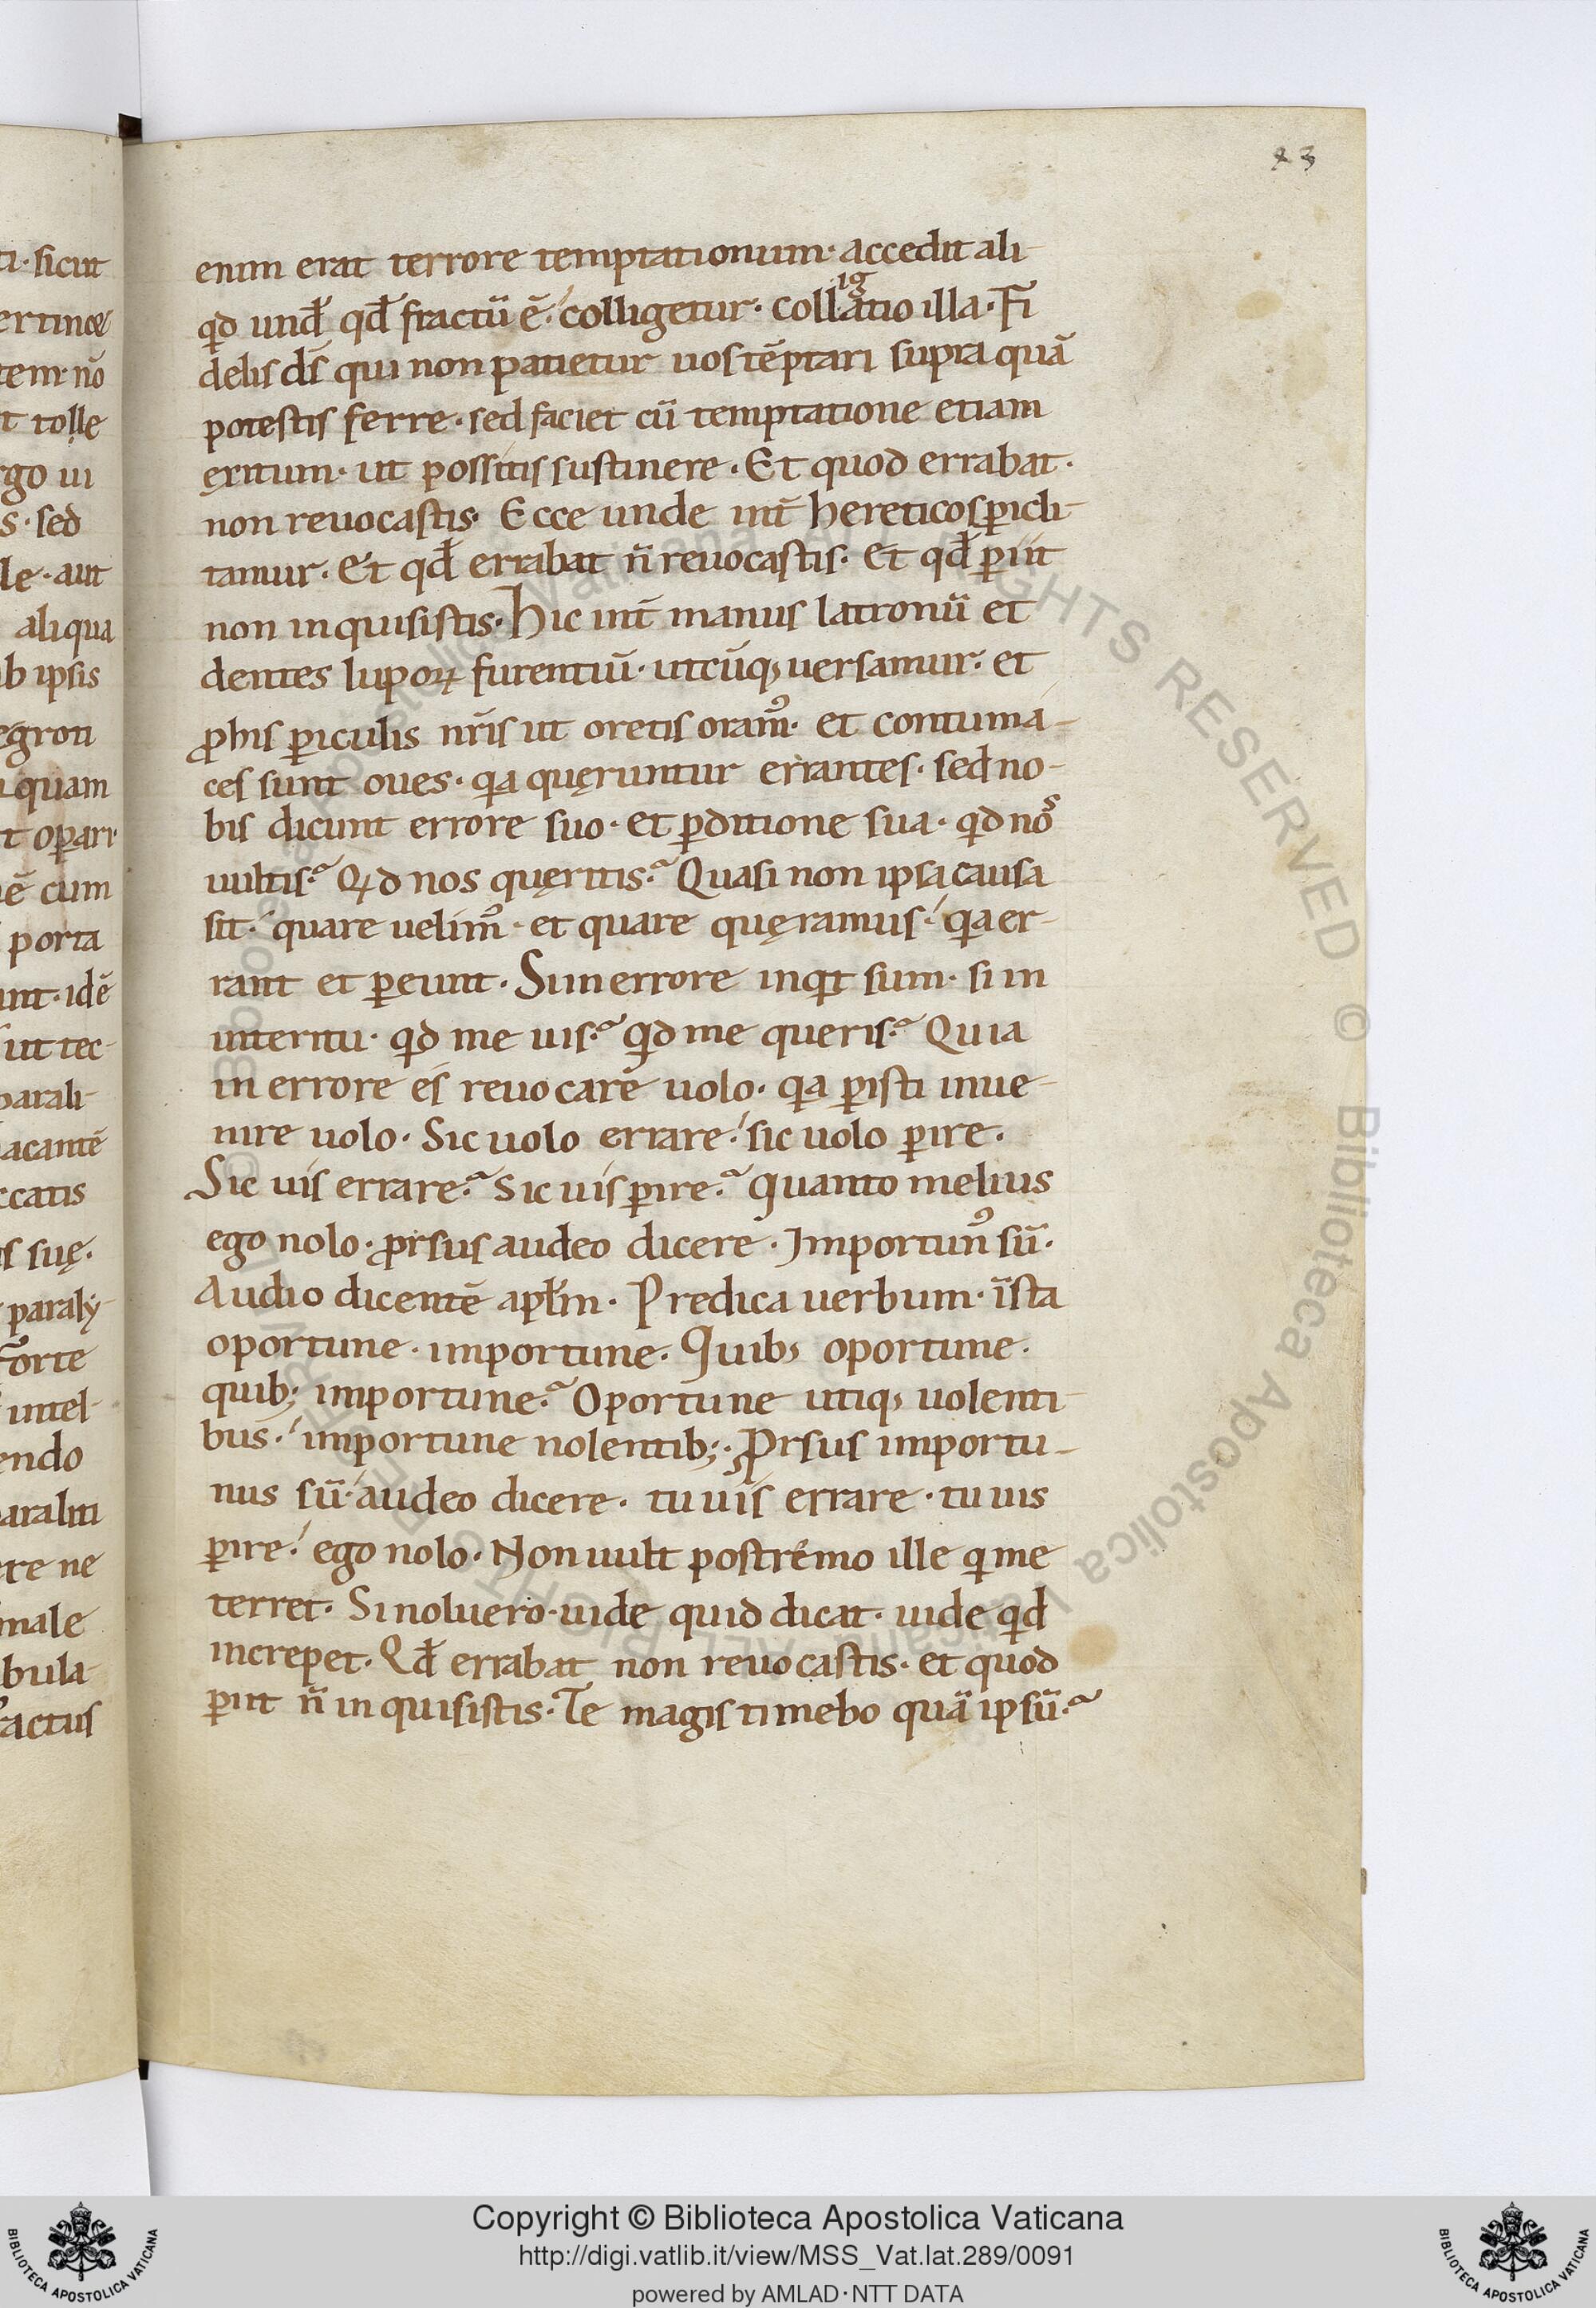 43
ti · sicut
ertinae
tem · nō
t tolle
rgo ui
s · sed
le · aut
aliqua
b ipsis
egron
quam
t oꝑari
ē cum
porta
unt · idē
ut tec-
parali-
acantē
ccatis
s suę.
paralẏ-
forte
intel-
endo
araliti
re ne
male
bula-
actus
enim erat terrore temptationum · accedit ali-
qd und̄ qd̄ fractū ē · colligetur · Coll·ig·atio illa · Fi
delis ds̄ qui non patietur uos tēptari supra quā
potestis ferre · sed faciet cū temptatione etiam
exitum · ut possitis sustinere · Et quod errabat ·
non reuocastis · Ecce unde int̄ hereticos ꝑicli-
tamur · Et qd̄ errabat n̄ reuocastis · Et qd̄ ꝑiit
non inquisistis · Hic int̄ manus latronū et
dentes lupoꝝ furentiū · utcūq; uersamur · et
ꝓ his ꝑiculis nr̄is ut oretis oram᾽ · et contuma-
ces sunt oues · qa quęruntur errantes · sed no-
bis dicunt errore suo · et ꝑditione sua · qd nos
uultis? Qd nos quęritis? Quasi non ipsa causa
sit · quare uelim᾽ · et quare quęramus · qa er-
rant et ꝑeunt · Si in errore inqt sum · si in
interitu · qd me uis? qd me queris? Quia
in errore es reuocare uolo · qa ꝑisti inue-
nire uolo · Sic uolo errare · sic uolo ꝑire ·
Sic uis errare? Sic uis ꝑire? Quanto melius
ego nolo · ꝓrsus audeo dicere · Importun᾽ sū ·
Audio dicentē apl̄m · Predica uerbum · īsta
oportune · importune · Quib; oportune ·
quib; importune? Oportune utiq; uolenti-
bus · importune nolentib; · Ꝓrsus importu-
nus sū · audeo dicere · tu uis errare · tu uis
ꝑire · ego nolo · Non uult postremo ille qi me
terret · Si noluero · uide quid dicat · uide qd
increpet · Qd̄ errabat non reuocastis · et quod
ꝑiit n̄ inquisistis · Te magis timebo quā ipsū?
© Biblioteca Apostolica Vaticana ALL RIGHTS RESERVED
Copyright © Biblioteca Apostolica Vaticana
http://digi.vatlib.it/view/MSS_Vat.lat.289/0091
powered by AMLAD·NTT DATA
BIBLIOTECA APOSTOLICA VATICANA
BIBLIOTECA APOSTOLICA VATICANA